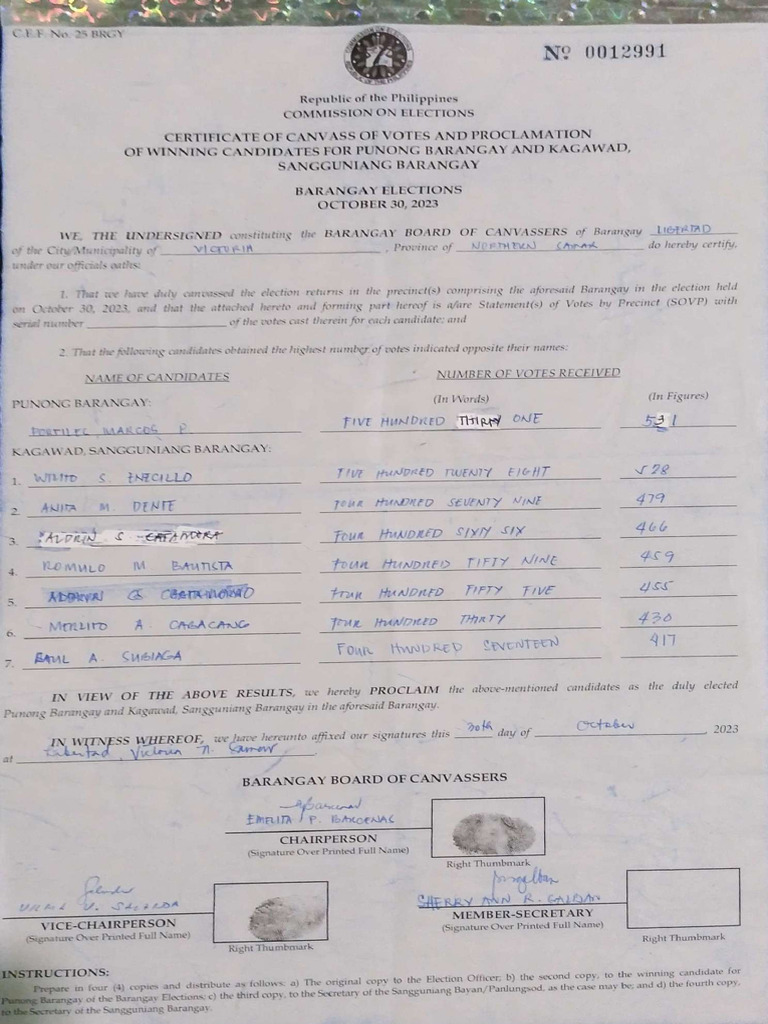 C.E.F. No. 25 BRGY
Nº 0012991
Republic of the Philippines
COMMISSION ON ELECTIONS
CERTIFICATE OF CANVASS OF VOTES AND PROCLAMATION
OF WINNING CANDIDATES FOR PUNONG BARANGAY AND KAGAWAD,
SANGGUNIANG BARANGAY
BARANGAY ELECTIONS
OCTOBER 30, 2023
WE, THE UNDERSIGNED constituting the BARANGAY BOARD OF CANVASSERS of Barangay LIBERTAD
of the City/Municipality of VICTORIA, Province of NORTHERN SAMAR do hereby certify,
under our officials oaths:
1. That we have duly canvassed the election returns in the precinct(s) comprising the aforesaid Barangay in the election held
on October 30, 2023, and that the attached hereto and forming part hereof is a/are Statement(s) of Votes by Precinct (SOVP) with
serial number of the votes cast therein for each candidate; and
2. That the following candidates obtained the highest number of votes indicated opposite their names:
NAME OF CANDIDATES NUMBER OF VOTES RECEIVED
PUNONG BARANGAY: (In Words) (In Figures)
MARCOS P. FIVE HUNDRED THIRTY ONE 531
KAGAWAD, SANGGUNIANG BARANGAY:
1. WILITO S. ENECILLO FIVE HUNDRED TWENTY EIGHT 528
2. ANITA M. DENTE FOUR HUNDRED SEVENTY NINE 479
3. ALDRIN S. FOUR HUNDRED SIXTY SIX 466
4. ROMULO M BAUTISTA FOUR HUNDRED FIFTY NINE 459
5. FOUR HUNDRED FIFTY FIVE 455
6. MERLITO A. CABACANG FOUR HUNDRED THIRTY 430
7. A. SUBIAGA FOUR HUNDRED SEVENTEEN 417
IN VIEW OF THE ABOVE RESULTS, we hereby PROCLAIM the above-mentioned candidates as the duly elected
Punong Barangay and Kagawad, Sangguniang Barangay in the aforesaid Barangay.
IN WITNESS WHEREOF, we have hereunto affixed our signatures this 30th day of October 2023
at Libertad, Victoria N. Samar
BARANGAY BOARD OF CANVASSERS
EMELITA P. BARDENAS
CHAIRPERSON
(Signature Over Printed Full Name)
Right Thumbmark
SHERRY ANN R.
VICE-CHAIRPERSON
(Signature Over Printed Full Name)
Right Thumbmark
MEMBER-SECRETARY
(Signature Over Printed Full Name)
Right Thumbmark
INSTRUCTIONS:
Prepare in four (4) copies and distribute as follows: a) The original copy to the Election Officer; b) the second copy, to the winning candidate for
Punong Barangay of the Barangay Elections; c) the third copy, to the Secretary of the Sangguniang Bayan/Panlungsod, as the case may be; and d) the fourth copy,
to the Secretary of the Sangguniang Barangay.